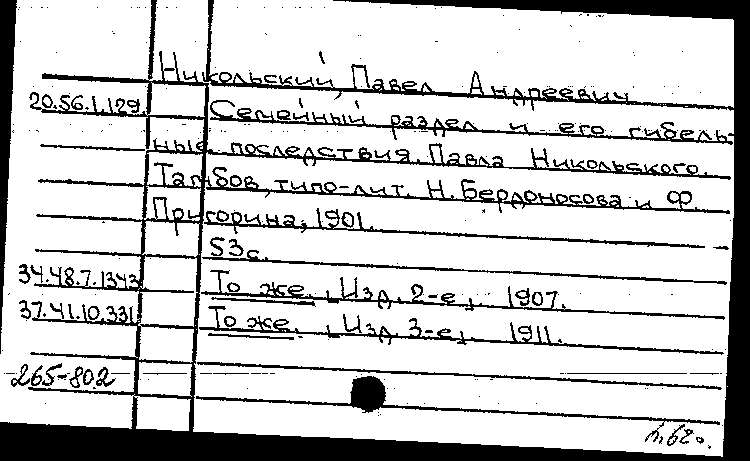 Никольский, Павел Андреевич
20.56.1.129. Семейный раздел и его гибель-
ные последствия. Павла Никольского.
Тамбов, типо-лит. Н. Бердоносова и Ф.
Пригорина, 1901.
53с.
34.48.7.1343. То же. , Изд. 2-е, . 1907.
37.41.10.331. То же. , Изд. 3-е, . 1911.
265-802